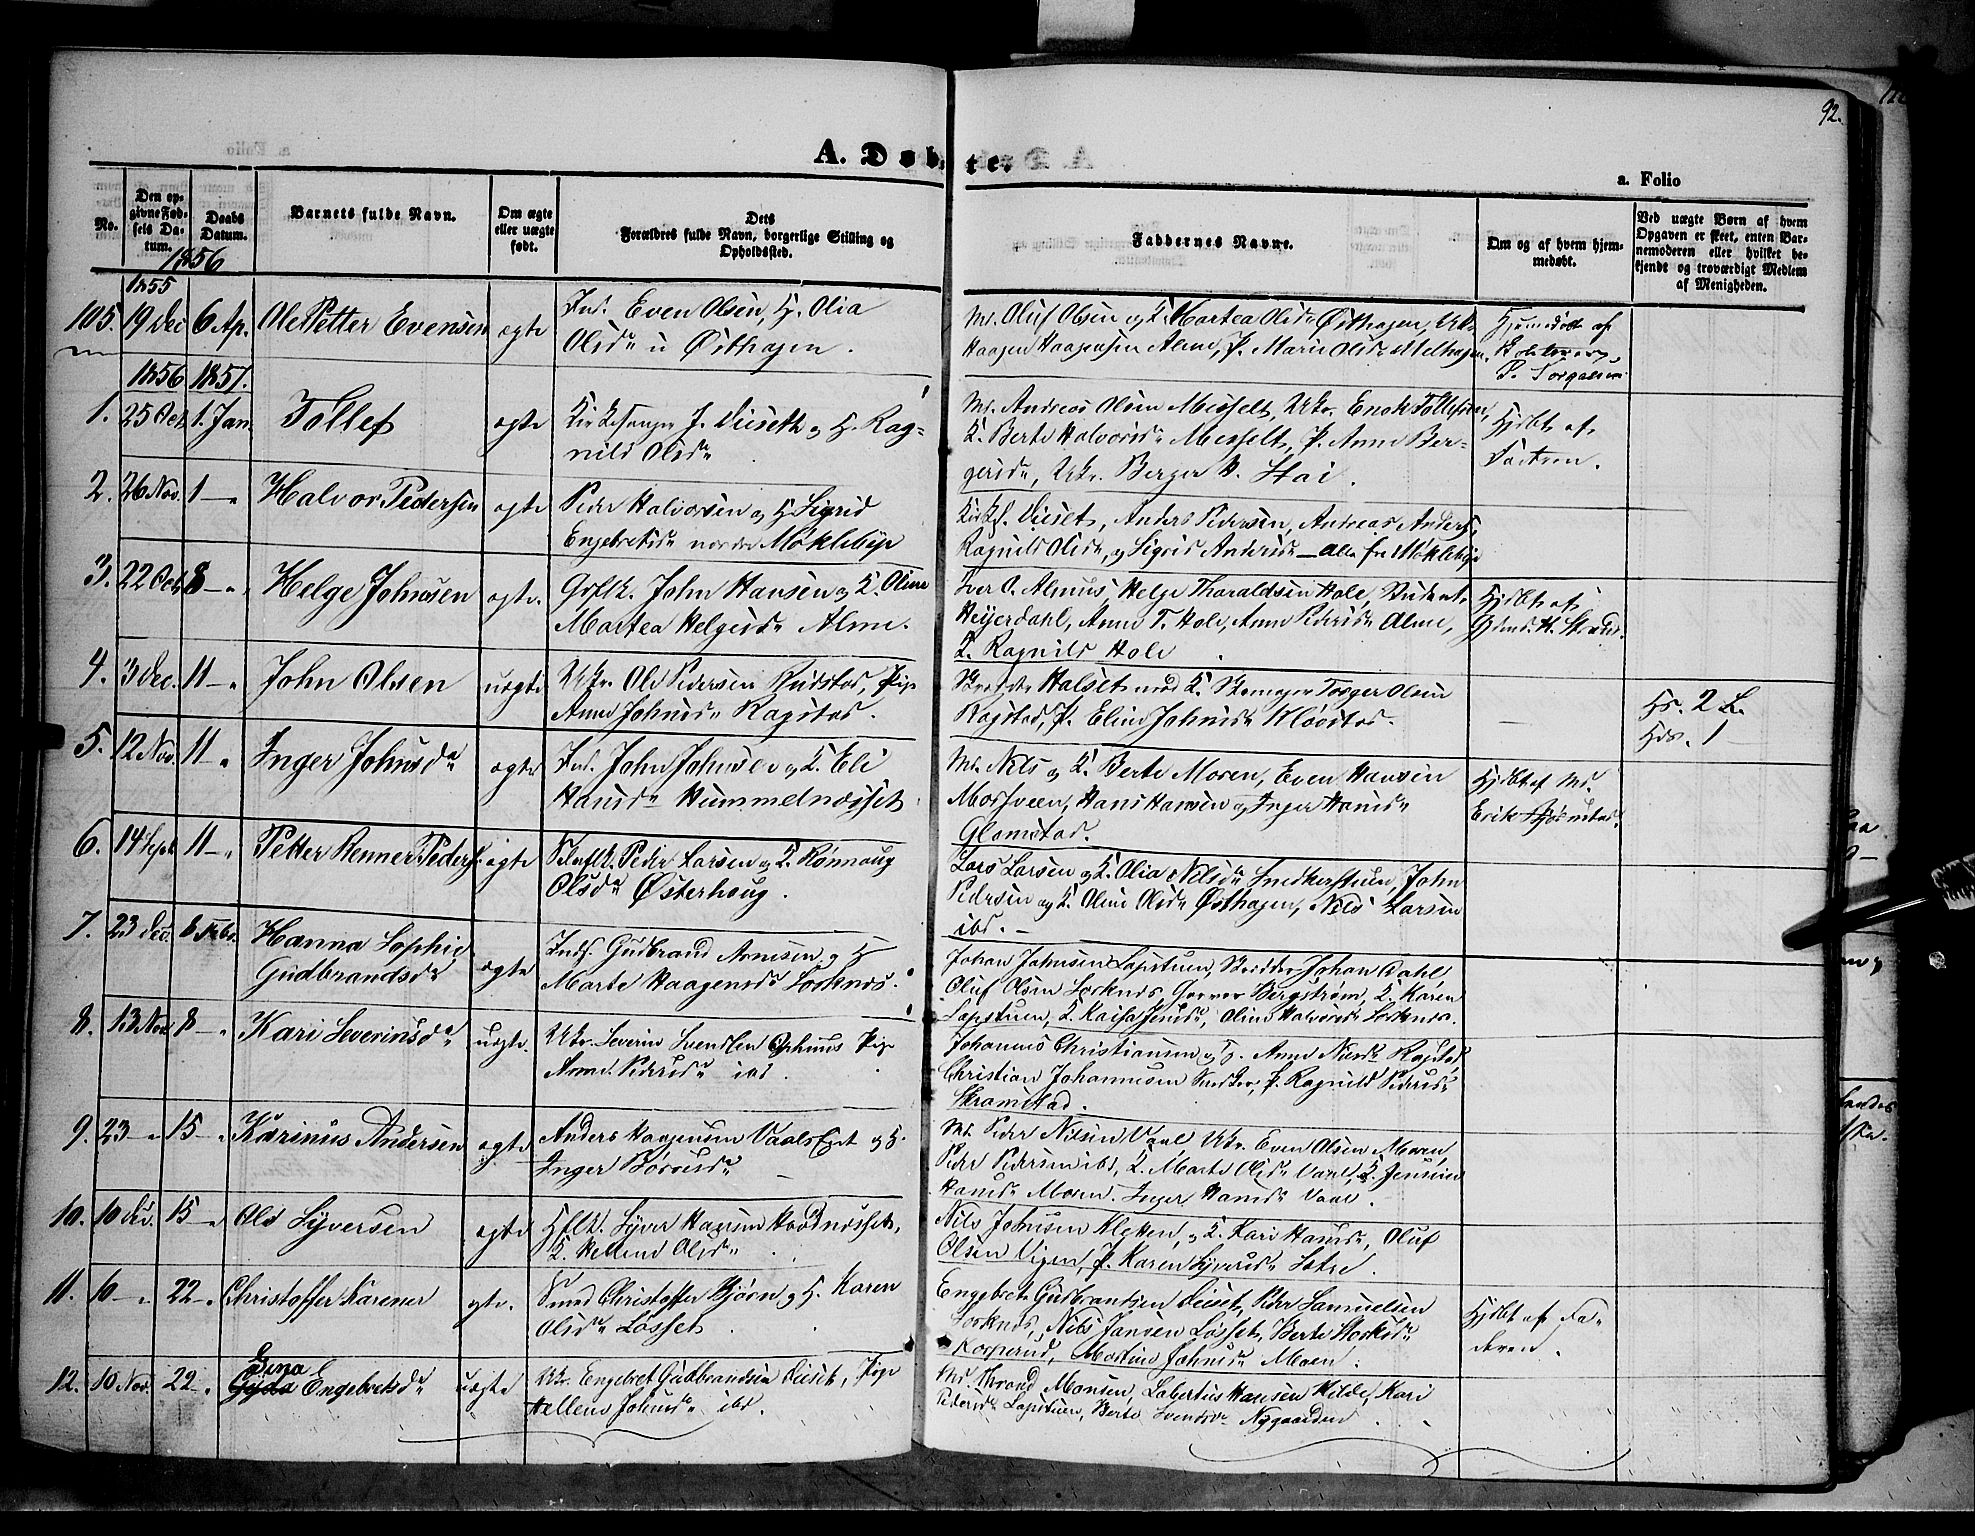 92.
A. Døbte.
a. Folio
No.
Den op-
givne Fød-
sels Da-
tum.
Daabs
Datum.
Barnets fulde Navn.
Om ægte
eller uægte
født.
Dets
Forældres fulde Navn, borgerlige Stilling og
Opholdssted.
Faddernes Navne.
Om og af hvem hjem-
medøbt.
Ved uægte Børn af hvem
Opgaven er skeet, enten Bar-
nemoderen eller hvilket be-
kjendt og troværdigt Medlem
af Menigheden.
1856
1855
105. 19 Dec 6 Ap. Ole Petter Evensen ægte Ind. Even Olsen, H. Olia
Olsdr u Østhagen.
M. Oluf Olsen og K. Martea Olsdr Østhagen, Uk.
Haagen Haagensen Alme, P. Marie Olsdr Melhagen.
Hjemedøbt af
P. Torgalsen
1856 1857.
1. 25 Oct. 1. Jan. Tollef ægte Kirkesanger J. Dieseth og H. Rag-
nild Olsdr
M. Andreas Olsen Messelt, Ukr. Enok Tollefsen,
K. Berte Halvorsdr Messelt, P. Anne Ber-
gersdr, Ukr. Berger H. Hai.
Hjdbt af
Faderen.
2. 26 Nov. 1 — " Halvor Pedersen ægte Peder Halvorsen og H Sigrid
Engebretsdr nordre Møklebye
Kirks. Dieset, Anders Pedersen, Andreas Anders.,
Ragnild Olsdr, og Sigrid Andersdr — alle fra Møklebye
3. 22 Oct 8 — " Helge Johnsen ægte. Grflk. John Hansen og K. Oline
Martea Helgesdr Alme.
Iver O. Almus Helge Tharaldsen Hole, Student
Heyerdahl, Anne T. Hole, Anne Pedersdr Alme,
K. Ragnild Hole
Hjdbt af
H. Strand.
4. 3 Dec. 11 — " John Olsen uægte Ukr. Ole Pedersen Rudstad, Pige
Anne Johnsdr Ragstad.
Halset med K. Skomager Torger Olsen
Ragstad, P. Eline Johnsdr Kloostad.
—
Hs. 2 L.
Hds. 1 —
5. 12 Nov. 11 — " Inger Johnsdr ægte Ind. John Johnsen og K. Eli
Hansdr Hummelnæsset
M. Nils og K. Berte Moren, Even Hansen
Morsveen, Hans Hansen og Inger Hansdr
Glomstad.
Hjdbt af M.
Erik Bjørnstad.
6. 14 Sept 11 — " Petter Renner Peders. ægte Selvflk. Peder Larsen og K. Rønnoug
Olsdr Østerhoug.
Lars Larsen og K. Olia Nilsdr Snedkerstuen, John
Pedersen og K. Oline Olsdr Østhagen, Nils Larsen
ibd. —
7. 23 Dec. 8 Febr. Hanna Sophie
Gudbrandsdr ægte Indf. Gudbrand Arnesen og H
Marte Haagensdr Lorknes.
Johan Johnsen Lapstuen, Skredder Johan Dahl
Oluf Olsen Lorknes, Garver Bergstrøm, K. Karen
Lapstuen, K. Kaisa Jensdr, Oline Halvorsdr Lorknes.
8. 13 Nov 8 — " Kari Severinsdr uægte. Ukr. Severin Svendsen Ophuus Pige
Anne Pedersdr ibd.
Johannes Christiansen og H. Anne Nilsdr Ragstad
Christian Johannesen Snedker, P. Ragnild Pedersdr
Skramstad.
9. 23 — " 15 — " Karinus Andersen ægte Anders Haagensen Vaalseiet og H.
Inger Børresdr —
M. Peder Nilsen Vaal Ukr. Even Olsen Moren,
Peder Pedersen ibd, K. Marte Olsdr Vaal, K. Jensine
Hansdr Moren. Inger Hansdr Vaal.
10. 10 Dec. 15 — " Ole Syversen ægte Hflk. Syver Hansen Hovdnæsset,
K. Hellene Olsdr.
Nils Johnsen Kletten, og K. Kari Hansdr, Oluf
Olsen Vigen, P. Karen Syversdr Sætre.
11. 10 — " 22 — " Christoffer Karener ægte. Smed Christoffer Bjørn og H. Karen
Olsdr Løsset.
Engebret Gudbrandsen Dieset, Peder Samuelsen
Lorknes, Nils Jansen Løsset, Berte
Kopperud, Martine Johnsdr Moen.
Hjdbt af Fa-
deren.
12. 10 Nov. 22 — " Gina
Engebretsdr uægte Ukr. Engebret Gudbrandsen Dieset, Pige
Hellene Johnsdr ibd.
M. Thrond Monsen, Labertus Hansen Hilde, Kari
Pedersdr Lapstuen, Berte Svendsdr Nygaarden.